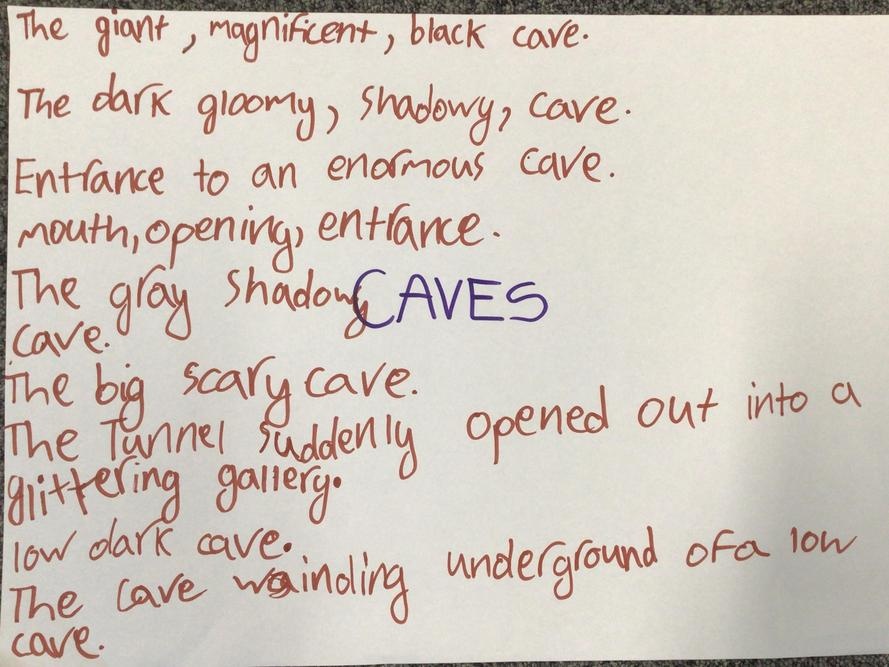 The giant, magnificent, black cave.
The dark gloomy, shadowy, cave.
Entrance to an enormous cave.
mouth, opening, entrance.
The gray shadowy CAVES
cave.
The big scary cave.
The Tunnel suddenly opened out into a
glittering gallery.
low dark cave.
The cave wainding underground of a low
cave.